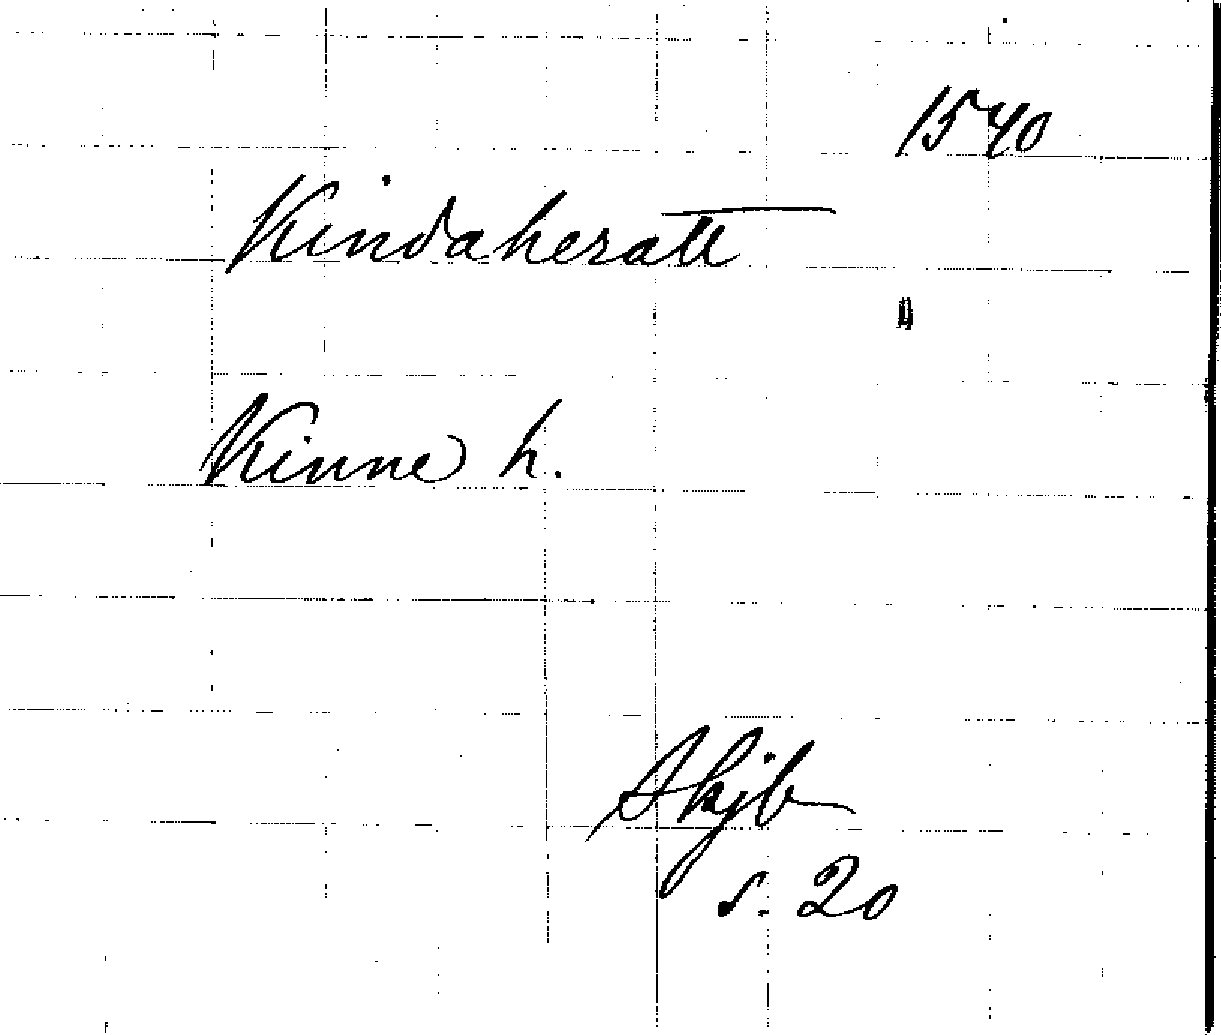 1540
Kindaheratt
Kinne h.
Skjb
s. 20